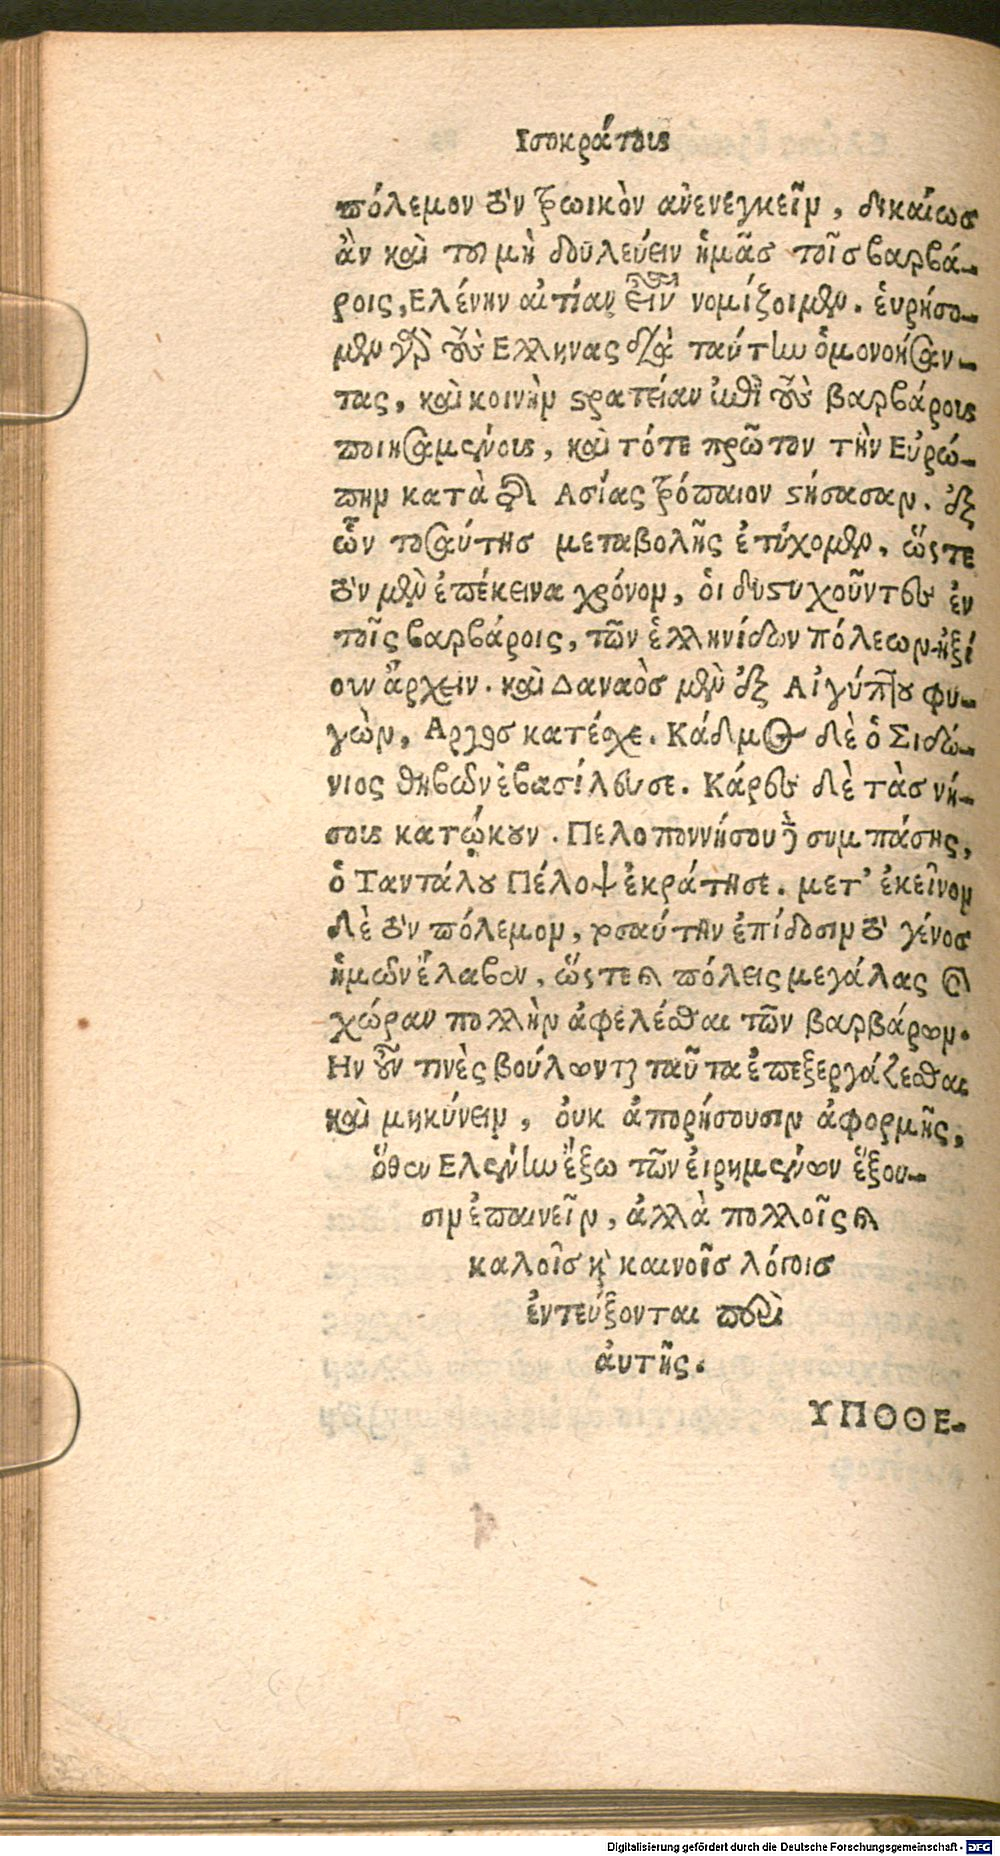 Ισοκράτους
πόλεμον τὸν τρωικὸν ἀνενεγκεῖν, δικαίως
ἂν καὶ τοῦ μὴ δουλεύειν ἡμᾶς τοῖς βαρβά-
ροις, Ελένην αἰτίαν εἶναι νομίζοιμεν. εὑρήσο-
μεν γὰρ τοὺς Ελληνας διὰ ταύτην ὁμονοήσαν-
τας, καὶ κοινὴν στρατείαν ἐπὶ τοὺς βαρβάρους
ποιησαμένους, καὶ τότε πρῶτον τὴν Εὐρώ-
πην κατὰ τῆς Ασίας τρόπαιον στήσασαν. ἐξ
ὧν τοσαύτης μεταβολῆς ἐτύχομεν, ὥστε
τὸν μὲν ἐπέκεινα χρόνον, ὁι δυστυχοῦντες ἐν
τοῖς βαρβάροις, τῶν ἑλληνίδων πόλεων ἠξί
ουν ἄρχειν. καὶ Δαναὸς μὲν ἐξ Αἰγύπτου φυ-
γὼν, Αργος κατέσχε. Κάδμος δὲ ὁ Σιδώ-
νιος θηβῶν ἐβασίλευσε. Κάρες δὲ τὰς νή-
σους κατῴκουν. Πελοποννήσου δὲ συμπάσης,
ὁ Ταντάλου Πέλοψ ἐκράτησε. μετ' ἐκεῖνον
δὲ τὸν πόλεμον, τοσαύτην ἐπίδοσιν τὸ γένος
ἡμῶν ἔλαβεν, ὥστε καὶ πόλεις μεγάλας καὶ
χώραν πολλὴν ἀφελέσθαι τῶν βαρβάρων.
Ην οὖν τινὲς βούλωνται ταῦτα ἐπεξεργάζεσθαι
καὶ μηκύνειν, ὀυκ ἀπορήσουσιν ἀφορμῆς,
ὅθεν Ελένην ἔξω τῶν εἰρημένων ἕξου-
σιν ἐπαινεῖν, ἀλλὰ πολλοῖς καὶ
καλοῖς καὶ καινοῖς λόγοις
ἐντεύξονται περὶ
ἀυτῆς.
ΥΠΟΘΕ-
Digitalisierung gefördert durch die Deutsche Forschungsgemeinschaft - DFG